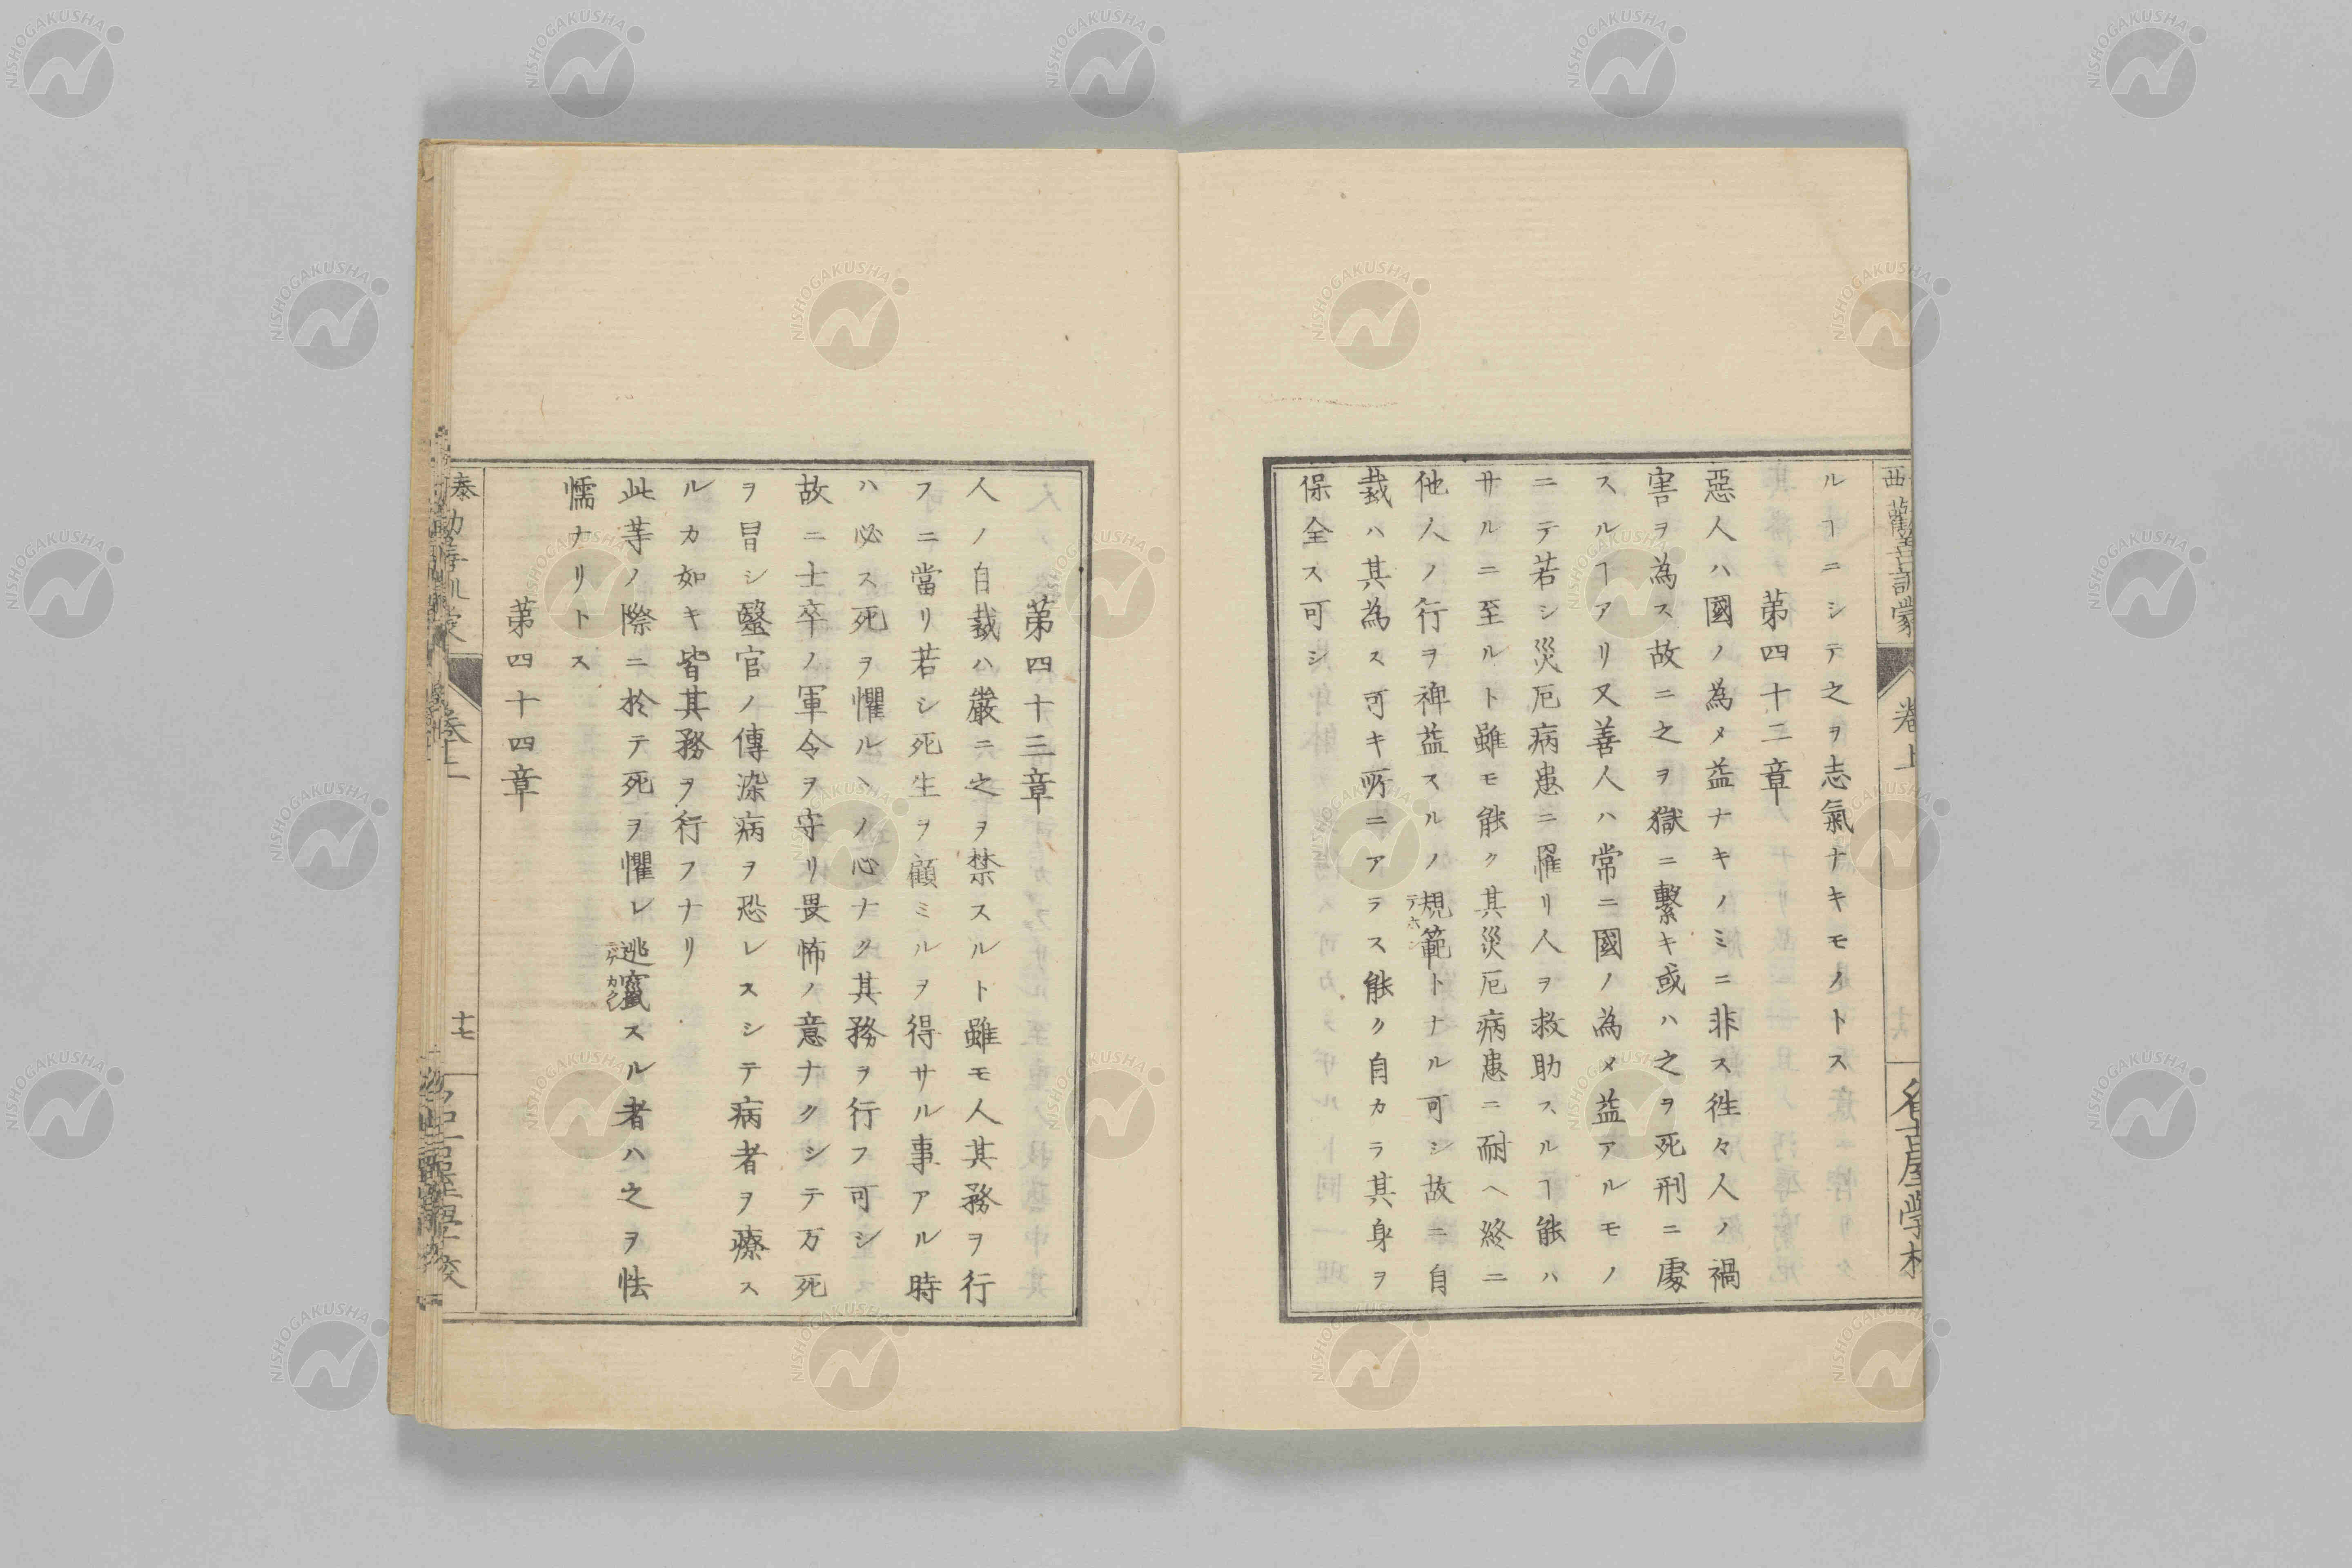 ルヿニシテ之ヲ志氣ナキモノトス
第四十二章
惡人ハ國ノ為メ益ナキノミニ非ス徃々人ノ禍
害ヲ為ス故ニ之ヲ獄ニ繫キ或ハ之ヲ死刑ニ處
スルヿアリ又善人ハ常ニ國ノ為メ益アルモノ
ニテ若シ災厄病患ニ罹リ人ヲ救助スルヿ能ハ
サルニ至ルト雖モ能ク其災厄病患ニ耐ヘ終ニ
他人ノ行ヲ裨益スルノ規範トナル可シ故ニ自
テホン
裁ハ其為ス可キ所ニアラス能ク自カラ其身ヲ
保全ス可シ
第四十三章
人ノ自裁ハ嚴ニ之ヲ禁スルト雖モ人其務ヲ行
フニ當リ若シ死生ヲ顧ミルヲ得サル事アル時
ハ必ス死ヲ懼ルヽノ心ナク其務ヲ行フ可シ
故ニ士卒ノ軍令ヲ守リ畏怖ノ意ナクシテ万死
ヲ冒シ醫官ノ傳染病ヲ恐レスシテ病者ヲ療ス
ルカ如キ皆其務ヲ行フナリ
此等ノ際ニ於テ死ヲ懼レ逃竄スル者ハ之ヲ怯
ニゲカクレ
懦ナリトス
第四十四章
西
勸善訓蒙
卷上
名古屋学校
泰
十七
NISHOGAKUSHA